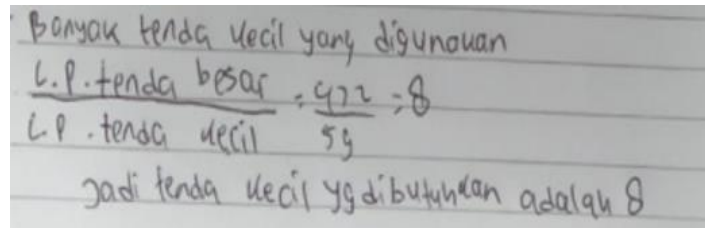 Banyak tenda kecil yang digunakan
L.P. tenda besar = 472 = 8
L.P. tenda kecil 59
Jadi tenda kecil yg dibutuhkan adalah 8